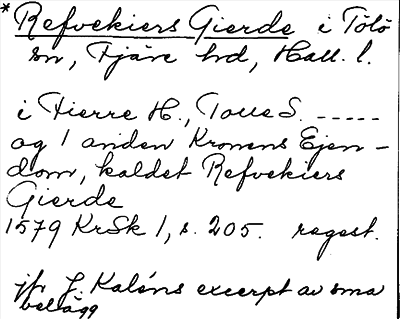 *Refvekiers Gierde i Tölö
sn, Fjäre hd, Hall. l.
i Fierre H., Tolle S. -----
og 1 anden Kronens Ejen-
dom, kaldet Refvekiers
Gierde
1579 KrSk 1, s. 205. regest.
jfr J. Kaléns excerpt av sma
belägg